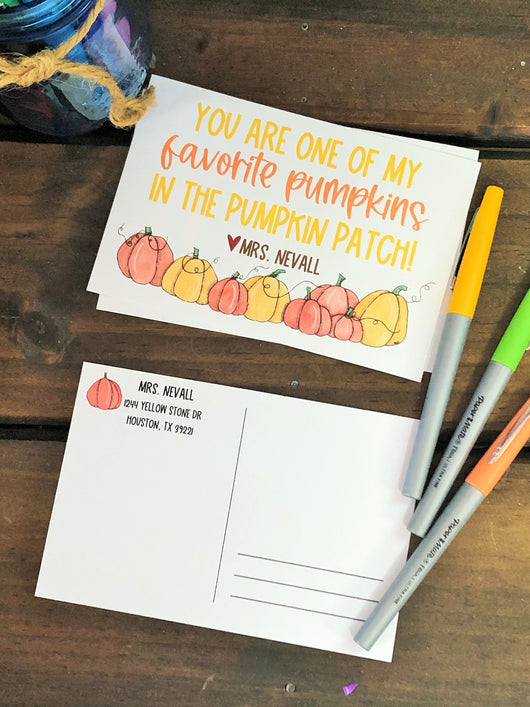 YOU ARE ONE OF MY
favorite pumpkins
IN THE PUMPKIN PATCH!
MRS. NEVALL
MRS. NEVALL
1244 YELLOW STONE DR
HOUSTON, TX 39221
PAPER MATE
PAPER MATE